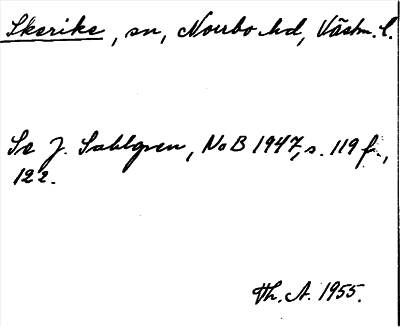 Skerike, sn, Norrbo hd, Västm. l.
Se J. Sahlgren, NoB 1947, s. 119 f.,
122.
Th. A. 1955.